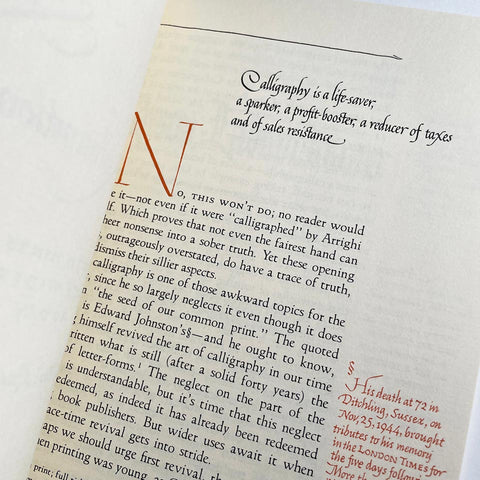 Calligraphy is a life-saver,
a sparker, a profit-booster, a reducer of taxes
and of sales resistance
NO, THIS WON'T DO; no reader would
it—not even if it were "calligraphed" by Arrighi
Which proves that not even the fairest hand can
nonsense into a sober truth. Yet these opening
outrageously overstated, do have a trace of truth,
dismiss their sillier aspects.
calligraphy is one of those awkward topics for the
, since he so largely neglects it even though it does
"the seed of our common print." The quoted
is Edward Johnston's§—and he ought to know,
himself revived the art of calligraphy in our time
written what is still (after a solid forty years) the
of letter-forms.¹ The neglect on the part of the
is understandable, but it's time that this neglect
redeemed, as indeed it has already been redeemed
book publishers. But wider uses await it when
-time revival gets into stride.
we should urge first revival, th
when printing was young, as C
print; full
§
His death at 72 in
Ditchling, Sussex, on
Nov, 25, 1944, brought
tributes to his memory
in the LONDON TIMES for
the five days follow
More th